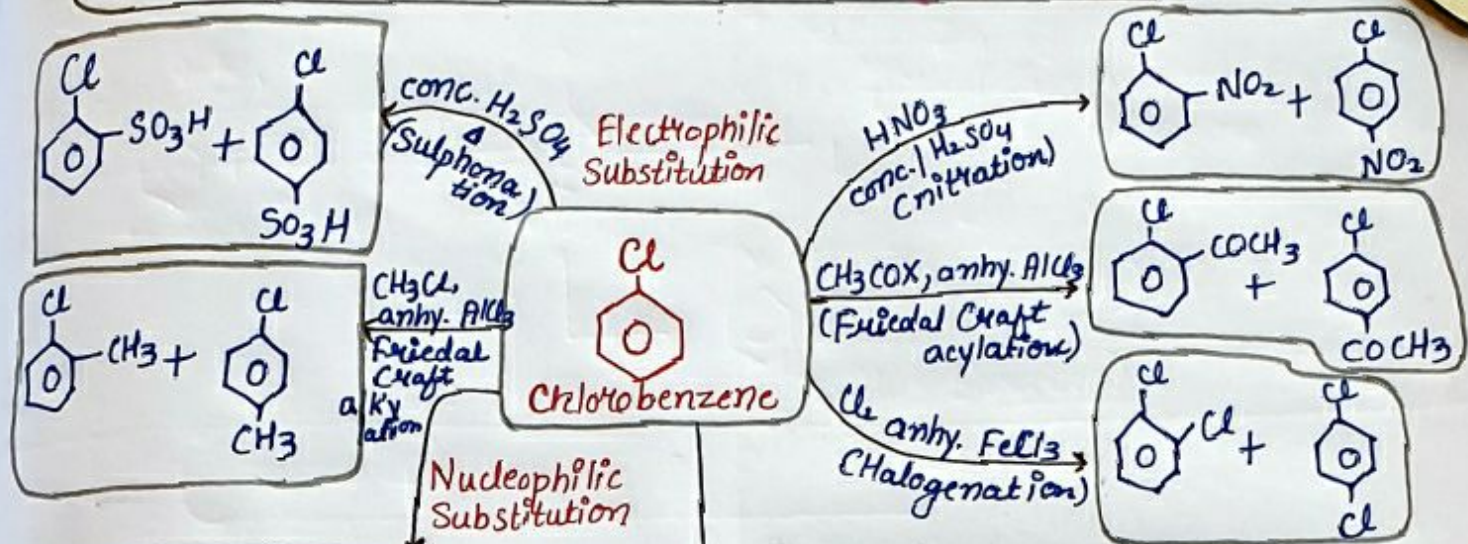 Cl
SO3H +
Cl
SO3H
conc. H2SO4
Δ
(Sulphona
tion)
Electrophilic
Substitution
HNO3
conc./H2SO4
(nitration)
Cl
NO2 +
Cl
NO2
Cl
CH3 +
Cl
CH3
CH3Cl,
anhy. AlCl3
Friedal
Craft
alky
ation
Cl
Chlorobenzene
CH3COX, anhy. AlCl3
(Friedal Craft
acylation)
Cl
COCH3
+
Cl
COCH3
Cl2 anhy. FeCl3
(Halogenation)
Cl
Cl +
Cl
Cl
Nucleophilic
Substitution